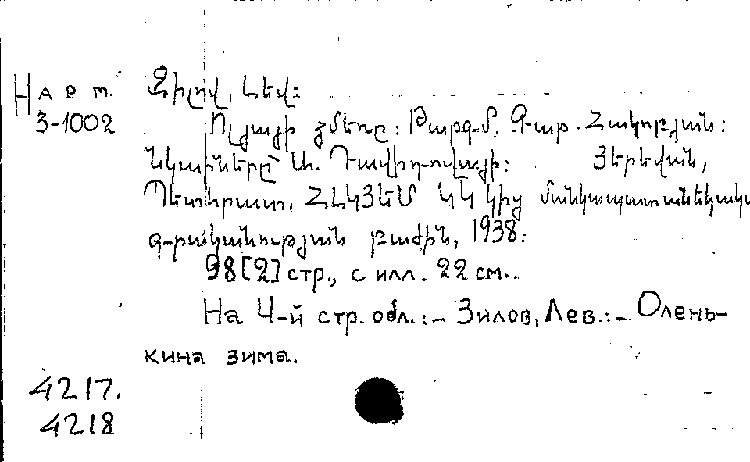 Нарт.
3-1002
Զիլով, Լեվ:
Օլյայի ձմեռը: Թարգմ. Գար. Հակոբյան:
Նկարները՝ Ա. Դավիդովայի: Յերեվան,
Պետհրատ, ՀԼԿՅԵՄ ԿԿ կից մանկապատանեկական
գրականության բաժին, 1938.
98[2] стр., с илл. 22 см.
На 4-й стр. обл.:- Зилов, Лев.:- Олень-
кина зима.
4217.
4218